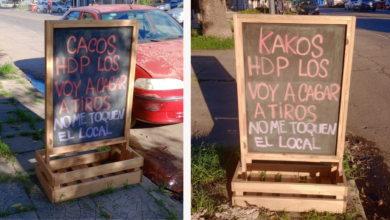 CACOS
HDP LOS
VOY A CAGAR
A TIROS
NO ME TOQUEN
EL LOCAL
KAKOS
HDP LOS
VOY A CAGAR
A TIROS
NO ME TOQUEN
EL LOCAL